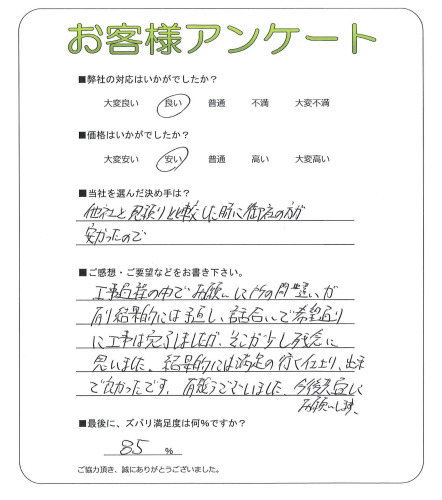 お客様アンケート
■弊社の対応はいかがでしたか？
大変良い 良い 普通 不満 大変不満
■価格はいかがでしたか？
大変安い 安い 普通 高い 大変高い
■当社を選んだ決め手は？
他社と見積り比較した際に御社の方が
安かったので
■ご感想・ご要望などをお書き下さい。
工事過程の中でお願いした所の間違いが
有り結果的には手直し、話合いで希望通り
に工事は完了しましたが、そこが少し残念に
思いました。結果的には満足の行く仕上り、出来
で良かったです。有難うございました。今後共宜しく
お願いします。
■最後に、ズバリ満足度は何%ですか？
85 %
ご協力頂き、誠にありがとうございました。